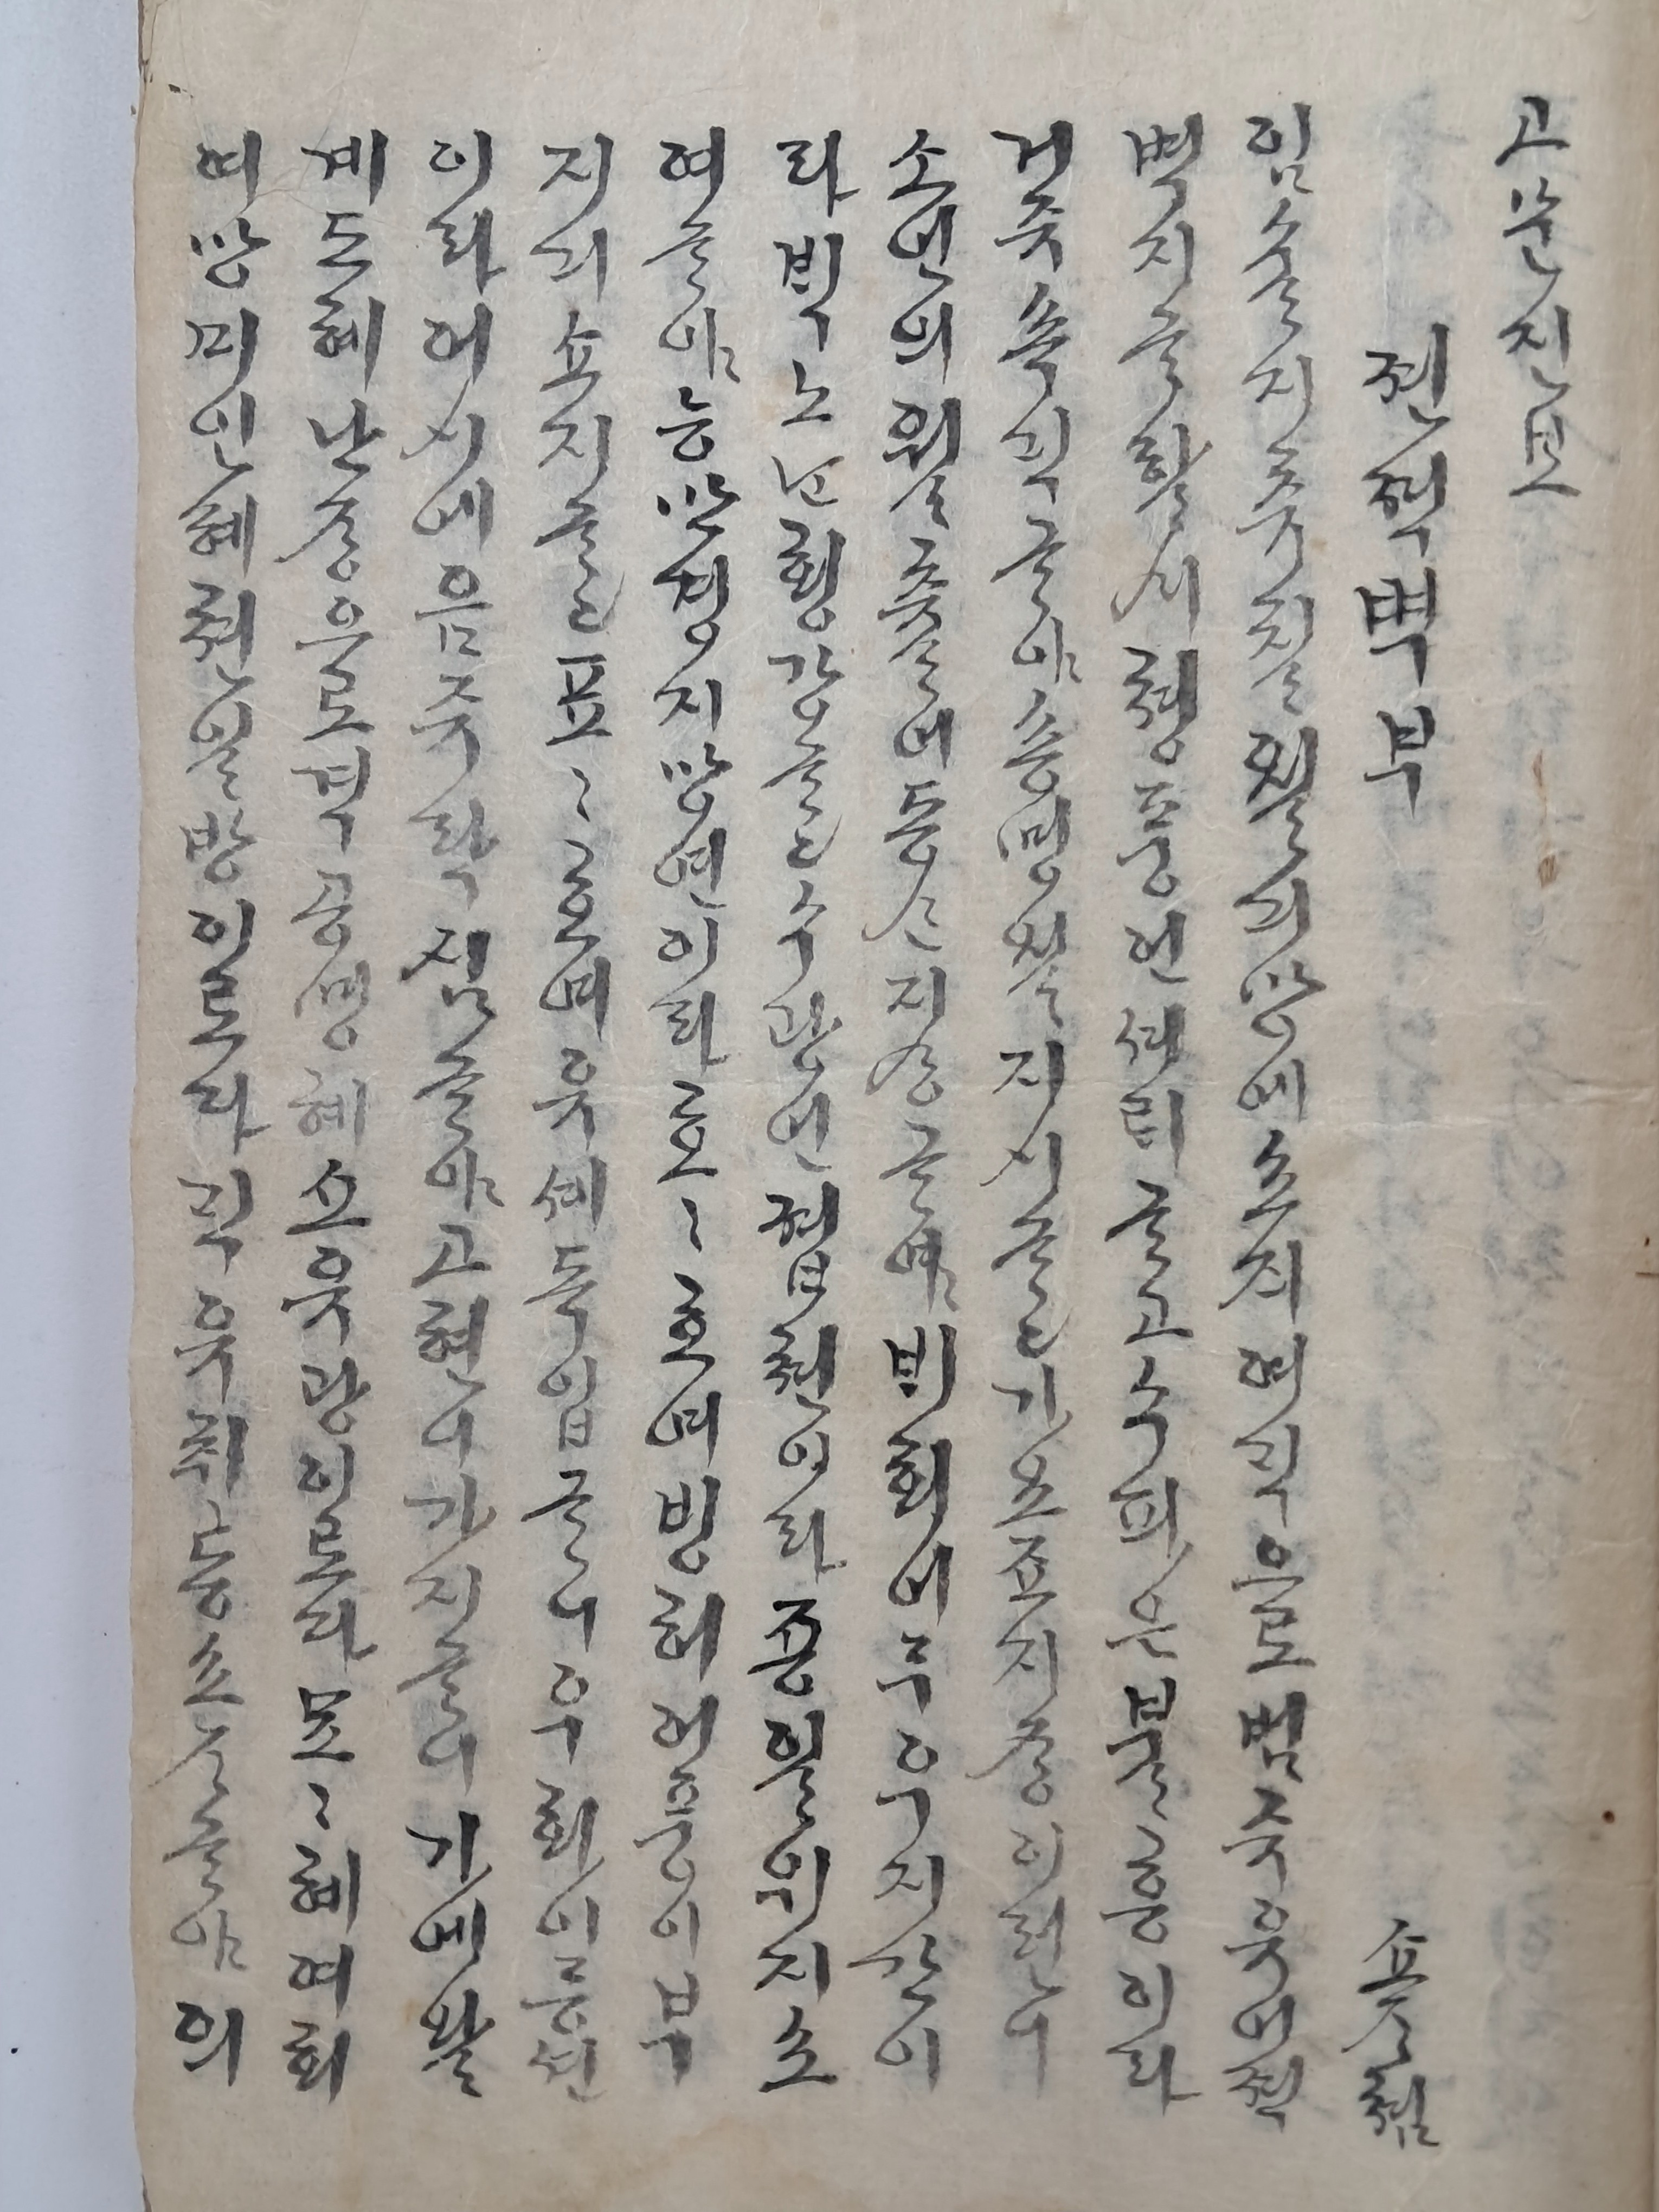 고문진보
젼젹벽부 쇼ᄌᆞ쳠
임슐지츄칠월긔망에쇼ᄌᆡ여ᄀᆡᆨ으로범쥬유어젹
벽지ᄒᆞᄒᆞᆯᄉᆡ쳥풍언셔ᄅᆡᄒᆞ고슈파은불흥이라
거쥬쵹ᄀᆡᆨᄒᆞ야숑명월지시ᄒᆞ고가요죠지장이러니
소언의월츌어동산지상ᄒᆞ야ᄇᆡ회어두우지간이
라ᄇᆡᆨ노ᄂᆞᆫ횡강ᄒᆞ고슈광언졉쳔이라죵일위지소
여ᄒᆞ야능만경지망연이라호〻호여빙허어풍이부
지기쇼지ᄒᆞ고표〻호여유셰독입ᄒᆞ니우화이등션
이라어시에음쥬락심ᄒᆞ야고현니가지ᄒᆞ니가에왈
계도혜난장으로격공명혜소유광이로다묘〻혜여회
여망미인혜쳔일방이로다ᄀᆡᆨ유취동쇼ᄌᆞᄒᆞ야의